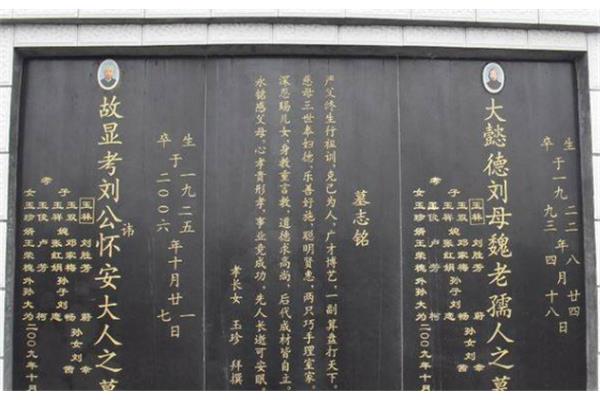 生于一九二二 八月廿四日
卒 九三 四 十八
大懿德刘母魏老孺人之墓
孝
子 玉林 刘胜芳
玉双 媳 邓家梅
玉祥 张红娟 孙子 刘
玉俊 卢芳
女 玉珍 婿 王荣槐 外孙 大为
孙女 刘茜
二00九年十月
墓志铭
严父终生行祖训,克己为人,广才博艺,一副算盘打天下。
慈母三世奉妇德,乐善好施,聪明贤惠,两只巧手理室家。
深恩赐儿女,身教重言教,道德求高尚,后代成材皆自立。
永铭感父母,心孝贵形孝,事业竞成功,先人长逝可安眠。
孝长女 玉珍 拜撰
生于一九二五年十月廿一日
卒 二00六 七
故显考刘公讳怀安大人之墓
孝
子 玉林 刘胜芳
玉双 媳 邓家梅
玉祥 张红娟 孙子 刘
玉俊 卢芳
女 玉珍 婿 王荣槐 外孙 大为
孙女 刘茜
二00九年十月